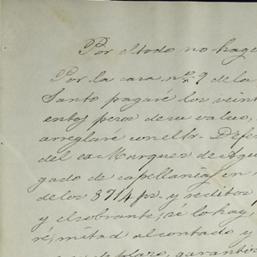 Por el todo no hago
Por la casa nº 9 de la
Santo pagaré los veint
entos pesos de su valor,
arreglaré con el Sr. Defe
del ex Marques de Agu
gado de capellanía en
de los 3714 ps. y reditos
y el sobrante, si lo hay,
ré, mitad al contado y
de plazo, garantiz